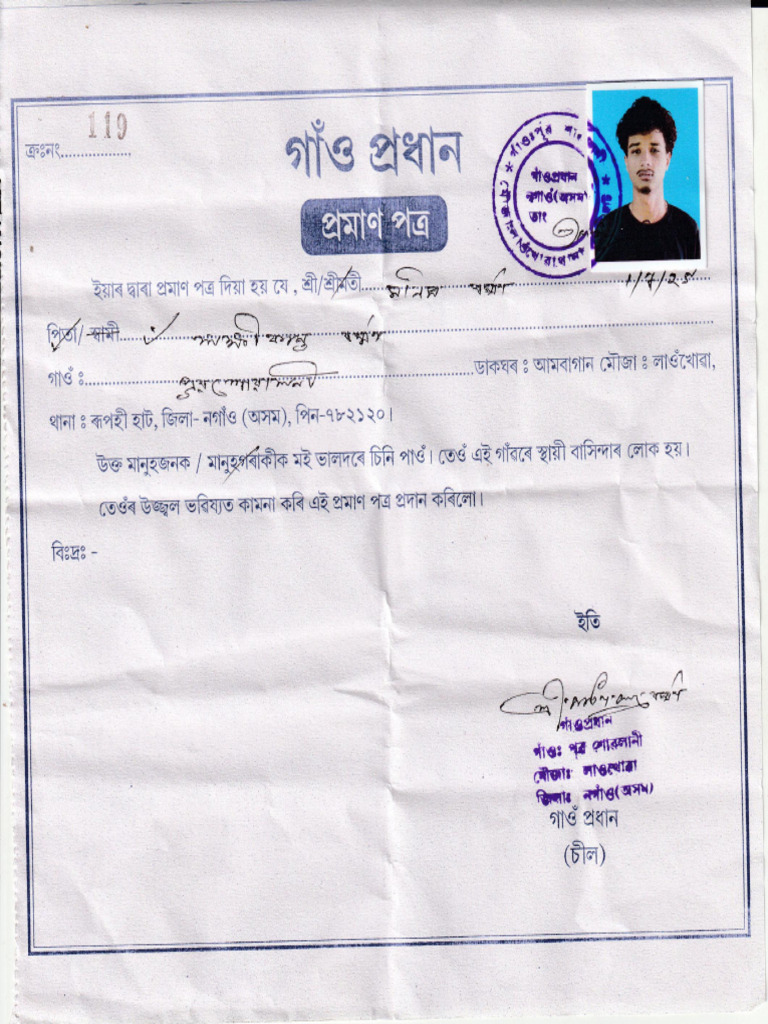 ক্ৰঃনং................ 119
গাঁও প্ৰধান
প্ৰমাণ পত্ৰ
গাঁওপ্ৰধান
নগাওঁ(অসম)
তাং
ইয়াৰ দ্বাৰা প্ৰমাণ পত্ৰ দিয়া হয় যে , শ্ৰী/শ্ৰীমতী........ বৰ্মণ
পিতা/ স্বামী........ বৰ্মণ
গাওঁ :........ ডাকঘৰ : আমবাগান মৌজা : লাওঁখোৱা,
থানা : ৰূপহী হাট, জিলা- নগাঁও (অসম), পিন-৭৮২১২০।
উক্ত মানুহজনক / মানুহগৰাকীক মই ভালদৰে চিনি পাওঁ। তেওঁ এই গাঁৱৰে স্থায়ী বাসিন্দাৰ লোক হয়।
তেওঁৰ উজ্জ্বল ভৱিষ্যত কামনা কৰি এই প্ৰমাণ পত্ৰ প্ৰদান কৰিলো।
বিঃদ্ৰঃ -
ইতি
গাঁওপ্ৰধান
গাঁওঃ পূব শোৱালনী
মৌজাঃ লাওখোৱা
জিলাঃ নগাঁও(অসম)
গাওঁ প্ৰধান
(চীল)